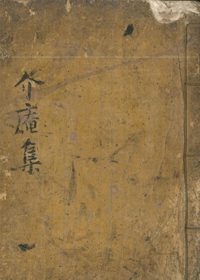 介庵集